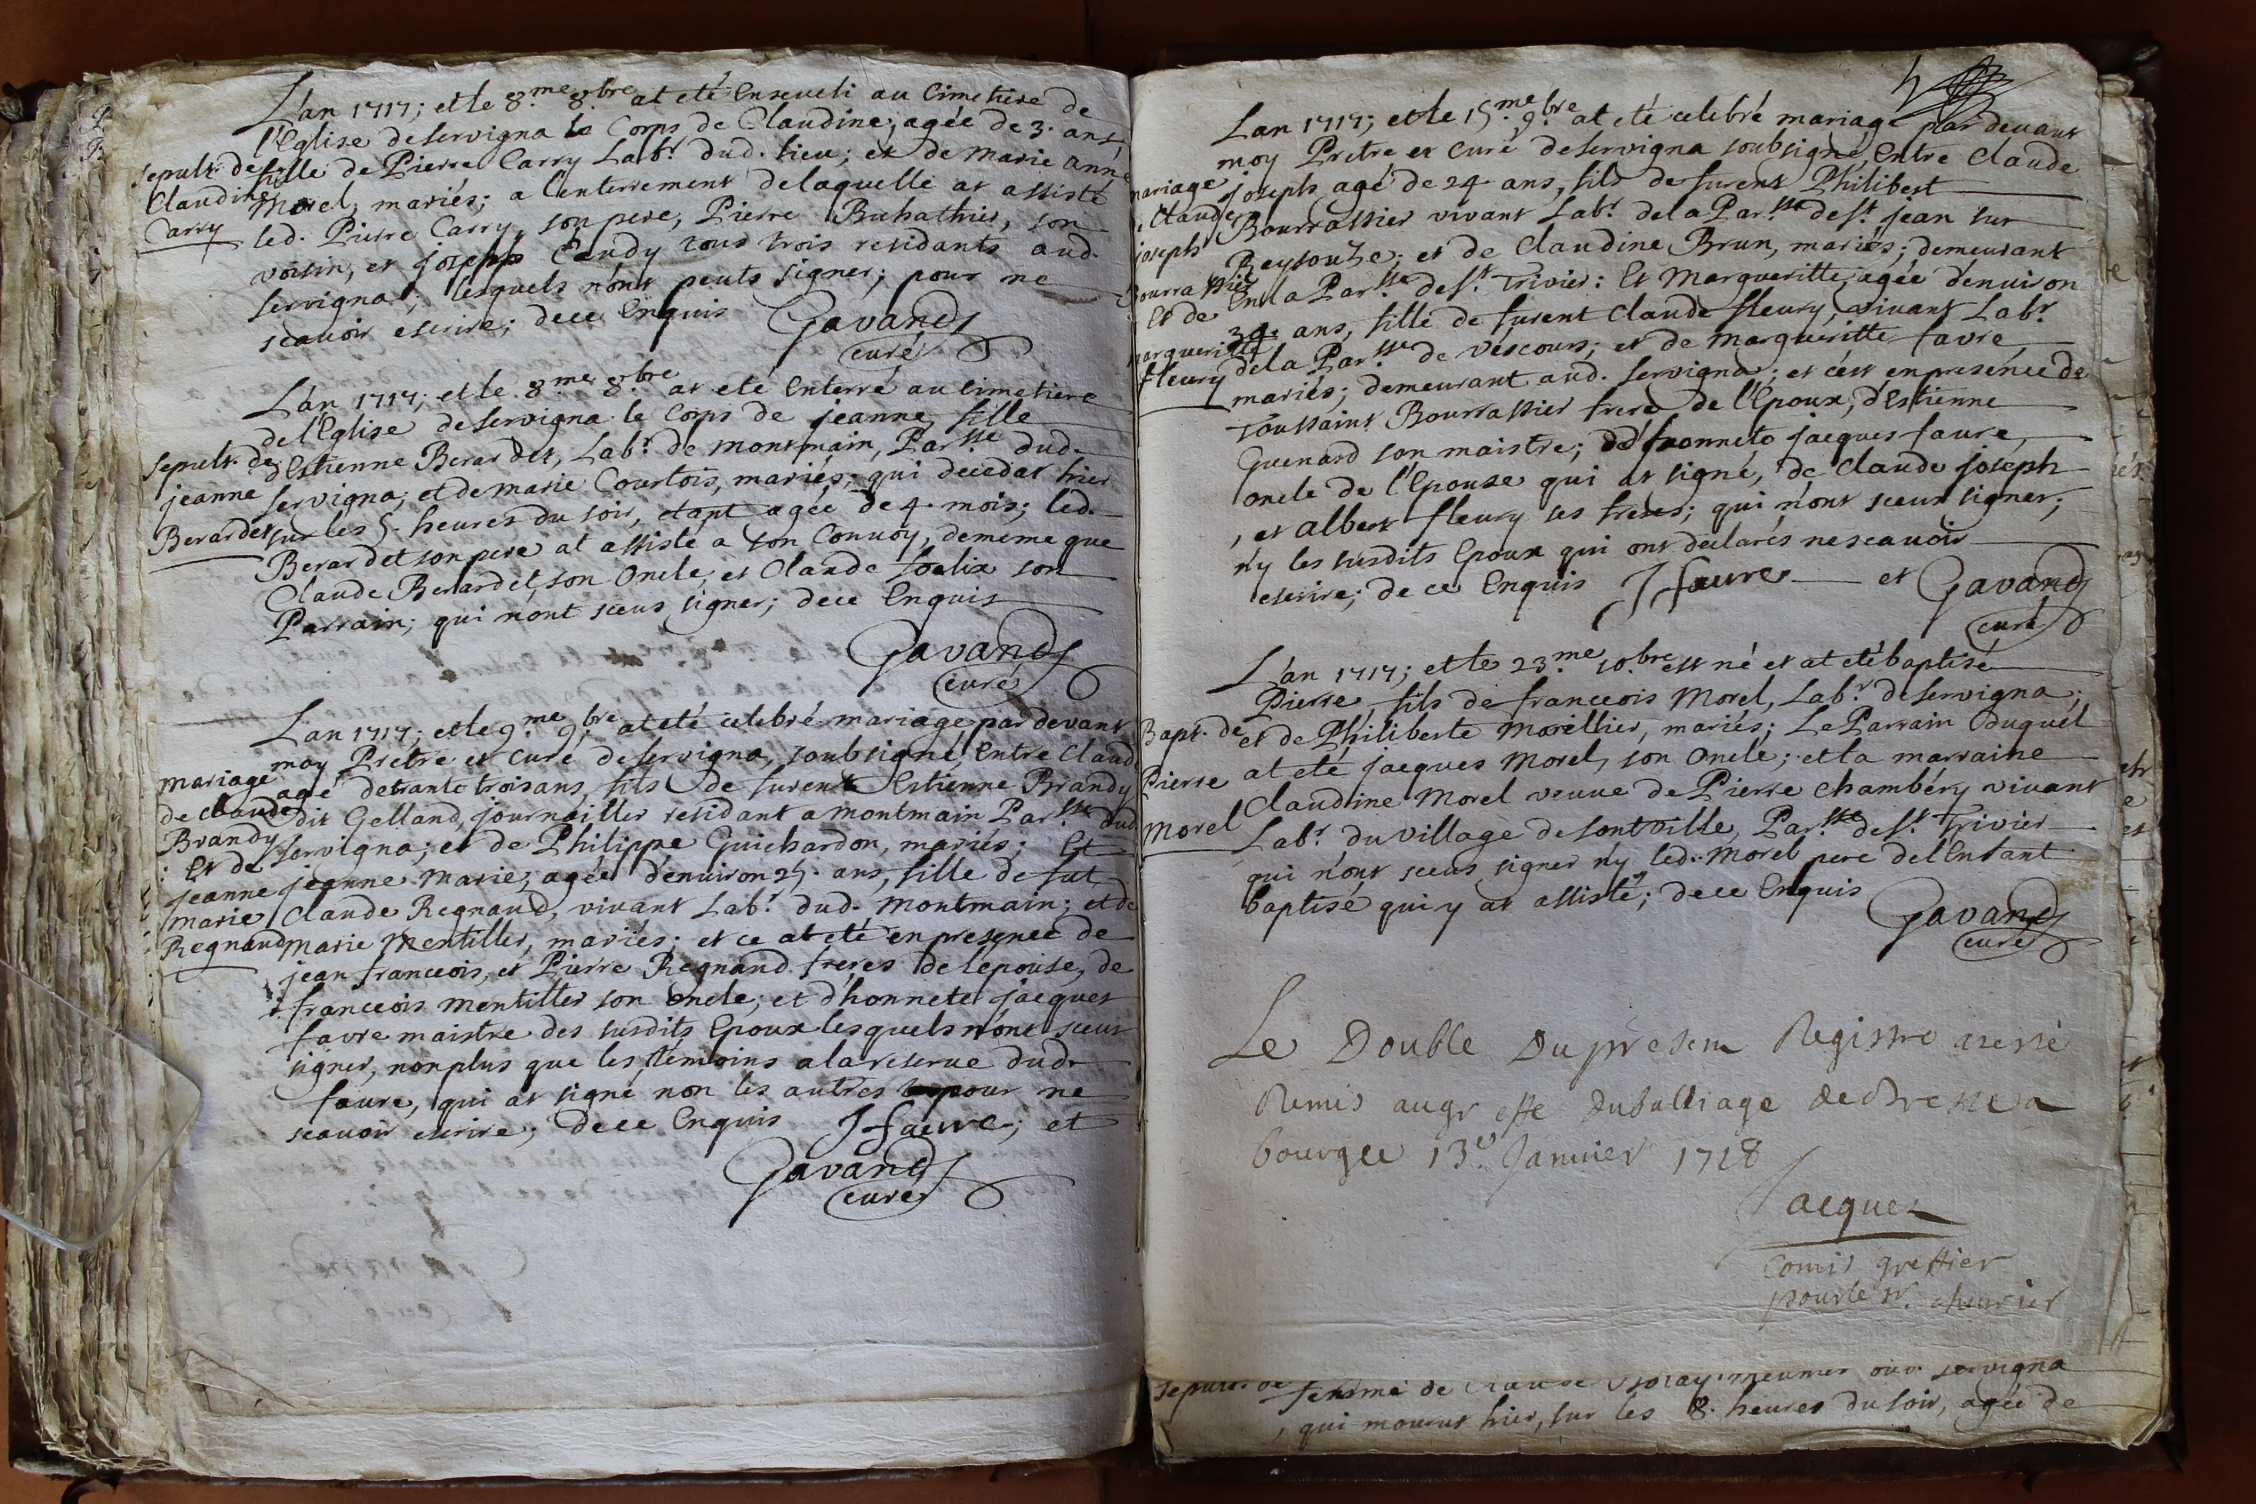 L'an 1717; et le 8.me 8.bre at eté Enseveli au Cimetiere de
l'Eglise de servigna le Corps de Claudine; agée de 3. ans,
sepult. de
Claudine
Carry
fille de Pierre Carry Lab.r dud. lieu; et de Marie anne
Morel, mariés; a l'enterrement de laquelle at assisté
led. Pierre Carry, son pere, Pierre Buhathier, son
voisin, et joseph Candy tous trois residants aud.
servigna; lesquels n'ont peuts signer; pour ne
scavoir escrire; de ce Enquis Gavand
curé
L'an 1717; et le 8.me 8.bre at eté Enterré au cimetiere
de l'Eglise de servigna le Corps de jeanne, fille
sepult. de
jeanne
Berardet
d'Estienne Berardet, Lab.r de montmain, Par.sse dud.
servigna; et de marie Courtois, mariés; qui decedat hier
sur les 5. heures du soir, etant agée de 4. mois; led.
Berardet son pere at assisté a son Convoy, de meme que
Claude Berardet, son Oncle, et Claude foelix son
Parrain; qui n'ont sceus signer; de ce Enquis
Gavand
curé
L'an 1717; et le 9.me 9.bre at eté celebré mariage par devant
moy Pretre et Curé de servigna, soubsigné, Entre Claude
mariage
de claude
Brandy
: Et de
jeanne
marie
Regnaud
agé de trante trois ans, fils de furent Estienne Brandy
dit Gelland, journailler residant a montmain Par.sse dud.
servigna; et de Philippe Guichardon, mariés; Et
jeanne Marie, agée d'environ 25. ans, fille de fut
Claude Regnaud, vivant Lab.r dud. montmain; et de
marie Mentiller, mariés; et ce at eté en presence de
jean franceois, et Pierre Regnaud freres de l'epouse, de
franceois mentiller son oncle; et d'honnete jacques
favre maistre des susdits Epoux lesquels n'ont sceus
signer, non plus que les témoins a la reserve dud.
favre, qui at signé non les autres pour ne
scavoir escrire; de ce Enquis J favre; et
Gavand
curé
L'an 1717; et le 15.me 9.bre at eté celebré mariage par devant
moy Pretre et Curé de servigna soubsigné, Entre Claude
mariage
Claude
joseph
Bourrassier
Et de
marguerite
fleury
joseph, agé de 24 ans, fils de furent Philibert
Bourrassier vivant Lab.r de la Par.sse de s.t jean sur
Reysouze; et de Claudine Brun, mariés; demeurant
En la Par.sse de s.t Trivier: Et Margueritte, agée d'environ
34. ans, fille de furent Claude fleury, vivant Lab.r
de la Par.sse de vescours; et de margueritte favre,
mariés; demeurant aud. servigna; et c'est en presénce de
Toussaint Bourrassier frere de l'Epoux, d'Estienne
Guenard son maistre; d'honnete jacques favre,
oncle de l'Epouse qui at signé, de Claude joseph
, et albert fleury ses freres; qui n'ont sceux signer;
n'y les susdits Epoux qui ont declarés ne scavoir
escrire; de ce Enquis J favre et Gavand
curé
L'an 1717; et le 23.me 10.bre est né et at eté baptisé
Pierre fils de franceois Morel, Lab.r de servigna;
Bapt. de
Pierre
morel
et de Philiberte Morellier, mariés; Le Parrain Duquel
at eté jacques Morel, son Oncle; et la marraine
Claudine Morel veuve de Pierre Chambéry vivant
Lab.r du village de Par.sse de s.t Trivier
qui n'ont sceus signer n'y led. Morel pere de l'Enfant
baptisé qui y at assisté; de ce Enquis Gavand
curé
Le Double Du présent Registre a esté
Remis au greffe du balliage de Bresse a
bourg ce 13.e Janvier 1718
Jacquet
Comis greffier
pour le s.r
sepult. de femme de Claude meunier servigna
, qui mourut hier, sur les 8. heures du soir, agée de